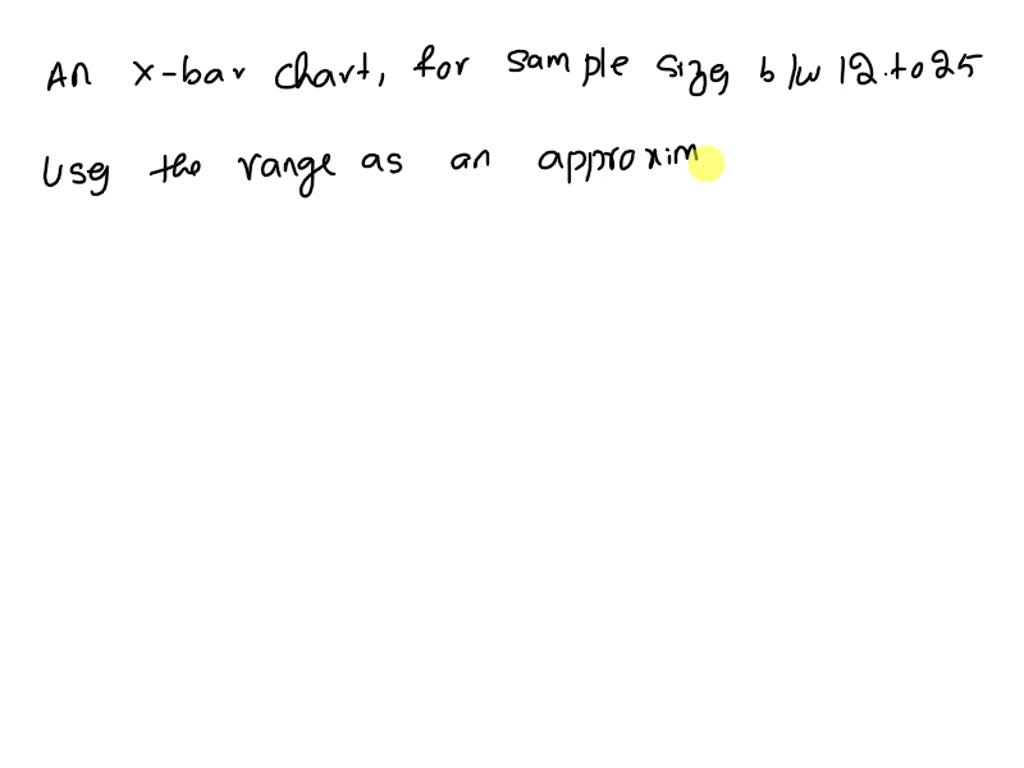 An x-bar chart, for sample size b/w 12 to 25
Use the range as an approxim